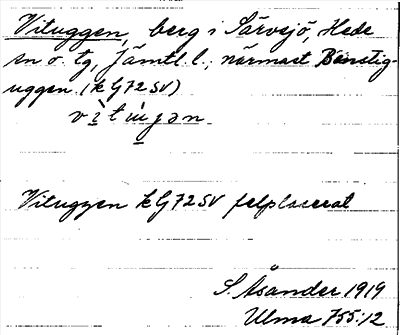 Vituggen, berg i Särvsjö, Hede
sn o. tg, Jämtl. l., närmast Bånstig-
uggen. (k G 72 SV)
vìtùjən
Vituggen k G 72 SV felplacerat
S. Åsander 1919
Ulma 755:12